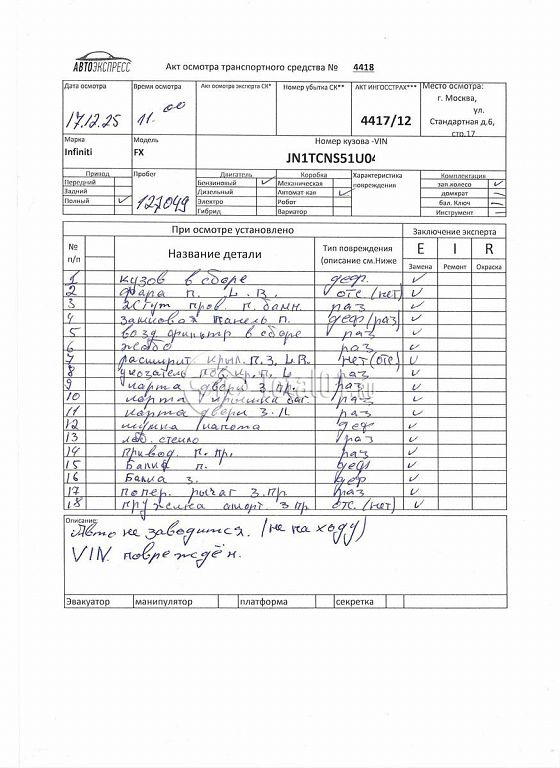 АВТОЭКСПРЕСС
Акт осмотра транспортного средства № 4418
Дата осмотра Время осмотра Акт осмотра эксперта СК* Номер убытка СК** АКТ ИНГОССТРАХ*** Место осмотра:
17.12.25 11.00 4417/12 г. Москва, ул. Стандартная д.6, стр.17
Марка Модель Номер кузова -VIN
Infiniti FX JN1TCNS51U04
Привод Пробег Двигатель Коробка Характеристика повреждения Комплектация
Передний 127049 Бензиновый ✓ Механическая зап.колесо ✓
Задний Дизельный Автомат кая ✓ домкрат
Полный ✓ Электро Робот бал. Ключ ✓
Гибрид Вариатор Инструмент
При осмотре установлено Заключение эксперта
№ п/п Название детали Тип повреждения (описание см.Ниже E I R
Замена Ремонт Окраска
1 кузов в сборе деф. ✓
2 фара п. L. R. отс. (нет) ✓
3 жгут пров. п. бамп. раз ✓
4 замковая панель п. деф (раз) ✓
5 возд. фильтр в сборе раз ✓
6 жабо раз ✓
7 расширит крыл. п.з. L.R. нет (отс) ✓
8 указатель пов. кр. п. L раз ✓
9 карта двери з. пр. раз ✓
10 карта крышки баг. раз ✓
11 карта двери з. л раз ✓
12 шумка капота деф ✓
13 лоб. стекло раз ✓
14 привод. п. пр. раз ✓
15 Балка п. деф ✓
16 Балка з. деф ✓
17 попер. рычаг з. пр раз ✓
18 пружина аморт. з пр отс. (нет) ✓
Описание:
Авто не заводится. (не на ходу)
VIN повреждён.
Эвакуатор манипулятор платформа секретка